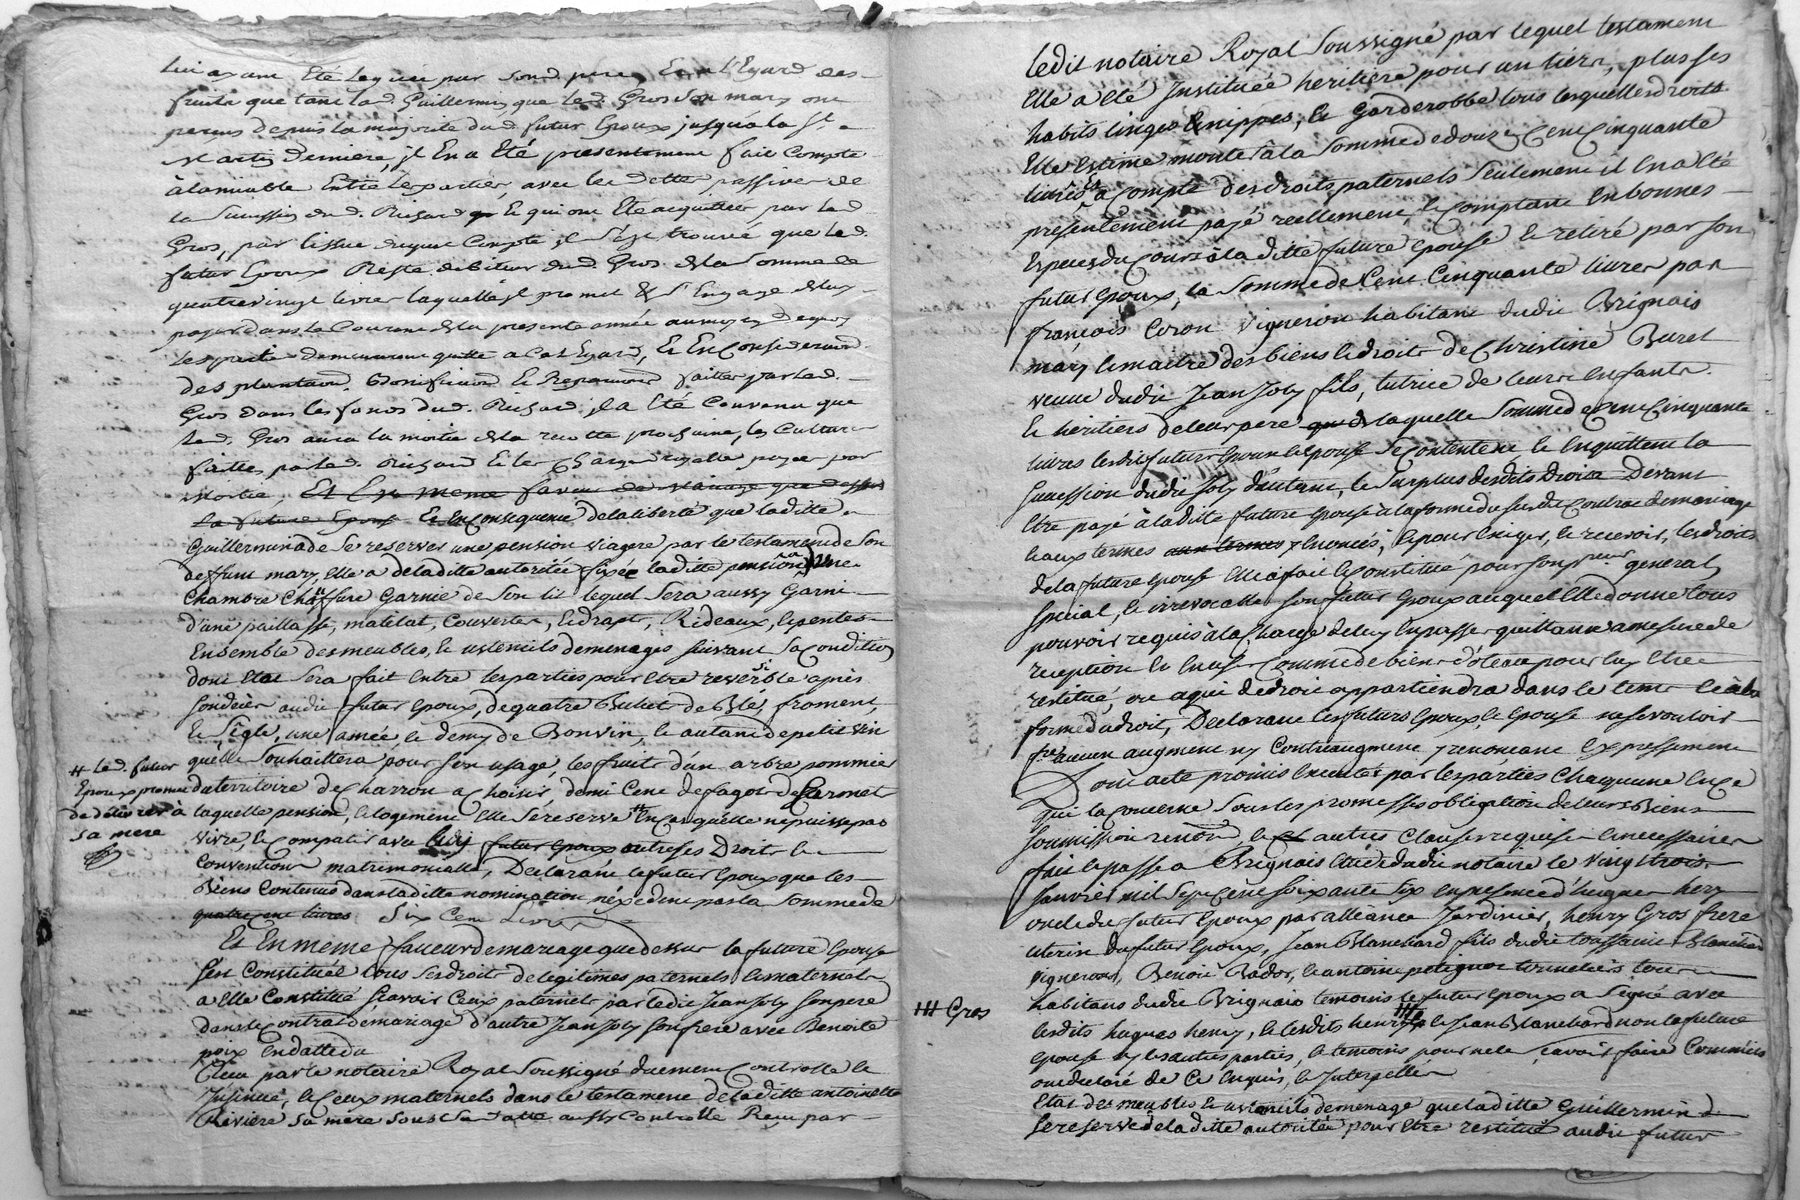 Lui ayant Eté Leguée par Son d. pere, Et a L'Egard des
fruits que tant lad. Guillermin, que led. Gros Son mary ont
perçus depuis la majorité dud. futur Epoux jusqu'a la St.
Martin Derniere, il En a Eté presentement fait Compte
à l'amiable Entre les parties, avec les dettes passives de
la Succession dud. Richard qui ont Eté acquittées par led.
Gros, par l'issue duquel Compte il s'est trouvé que led.
futur Epoux Reste debiteur dud. Gros de la Somme de
quatre vingt livres laquelle il promet & s'Engage de luy
payer dans le Courant de la presente année au moyen de quoy
les parties demeurent quitte a cet Egard, Et En Consideration
des plantaons. Bonifications Et Reparations faittes par led.
Gros dans les fonds dud. Richard, il a Eté Convenu que
led. Gros aura la moitié de la recolte prochaine, les Cultures
faittes par led. Richard Et les Charges royalles payées par
moitié. Et En meme faveur de mariage que dessus
la future Epouse Et En Consequence de la liberté que laditte
Guillermin a de se reserver une pension viagere par le testament de son
deffunt mary, elle a de laditte autoritée fixée laditte pension a Une
Chambre Chauffure Garnie de Son lit lequel Sera aussy Garni
d'une paillasse, matelat, Couvertes, le drapt, Rideaux, le pentes
Ensemble des meubles, le ustencils de menages suivant sa Condition
dont Etat Sera fait entre les parties pour etre reversible après
son deces audit futur Epoux, de quatre Bichet de Blé, froment,
le Sigle, une amée, le demy de Bon vin, le autant de petit vin
qu'elle Souhaittera pour Son usage, les fruits d'un arbre pommier
# Led. futur
Epoux promet
de delivrer à
sa mere
du territoire de Charron a Choisir, demi Cent de fagot de
laquelle pension, le logement elle se reserve # En cas quelle ne puisse pas
vivre, le Compatir avec ledit futur Epoux outre ses Droits le
Convention matrimonialle, Declarant le futur Epoux que les
Biens Contenus dans laditte nomination n'éxedent pas la Somme de
quatre cent livres Six Cent Livres
Et En meme faveur de mariage que dessus la future Epouse
s'est Constituée tous ses droit de legitimes paternels le maternels
a elle Constitué Scavoir Ceux paternels par ledit Jean Joly son pere
dans le Contrat de mariage d'autre Jean Joly son frere avec Benoite
poix En datte du
Reçu par le notaire Royal Soussigné duement Controllé le
Insinué, le Ceux maternels dans le testament de laditte antoinette
Riviere sa mere sous sa datte aussy Controllé Reçu par
ledit notaire Royal Soussigné par lequel testament
elle a eté Instituée heritiere pour un tiers, plus ses
habits linges & nippes, le Garderobbe tous lesquelles droits
elle Estime monter à la Somme de douze Cent Cinquante
livres a Compte des droits paternels Seulement il en a eté
présentement payé reellement, le Comptant En bonnes
Especes du Cours à la ditte future epouse le retiré par son
futur epoux, la Somme de Cent Cinquante livres par
françois Coron vigneron habitant dudit Brignais
mary le maitre des biens le droits de Christine Buret
veuve dudit Jean Joly fils, tutrice de leurs Enfants
le heritiers de leur pere laquelle Somme de Cent Cinquante
livres lesdits futurs epoux le epouse se contentent, le Enquittent la
Succession dudit Joly d'autant, le Surplus desdits Droits Devant
etre payé à laditte future epouse à la forme du susdit Contrat de mariage
le aux termes y Enoncés, le pour Exiger, le recevoir, lesdroits
de la future epouse elle a fait le Constitué pour son pcur. general,
special, le irrevocable son futur epoux auquel elle donne tous
pouvoirs requis à la Charge de luy En passer quittance a mesure de
reception le En user Comme de biens dotaux pour luy etre
restitué, ou a qui de droit appartiendra dans le tems le à la
forme du droit, Declarant les futurs epoux, le epouse ne se vouloir
fre. aucun augment ny Contraugment y renonçant Expressement
Dont acte promis Executer par les parties Chaquune En Ce
qui la Concerne sous les promesses obligation de leurs Biens
Soumission renon. le autres Clauses requises le necessaires
fait le passé a Brignais Etude dudit notaire le vingt trois
Janvier mil Sept Cent Soixante Six En presence d'hugues hery
oncle du futur epoux par alliance Jardinier, henry Gros frere
uterin du futur epoux, Jean Blanchard fils dudit toussaint Blanchard
vignerons, Benoit Bador, le antoine petignot tonneliers tous
habitans dudit Brignais temoins le futur epoux a Signé avec
### Gros
lesdits hugues henry, le lesdits henry ### le Jean Blanchard non la future
epouse ny les autres parties, le temoins pour ne le Scavoir faire Comme ils
ont declaré de Ce Enquis, le Interpellés
Etat des meubles le ustencils de menage que laditte Guillermin
se reserve de laditte autoritée pour etre restitué audit futur